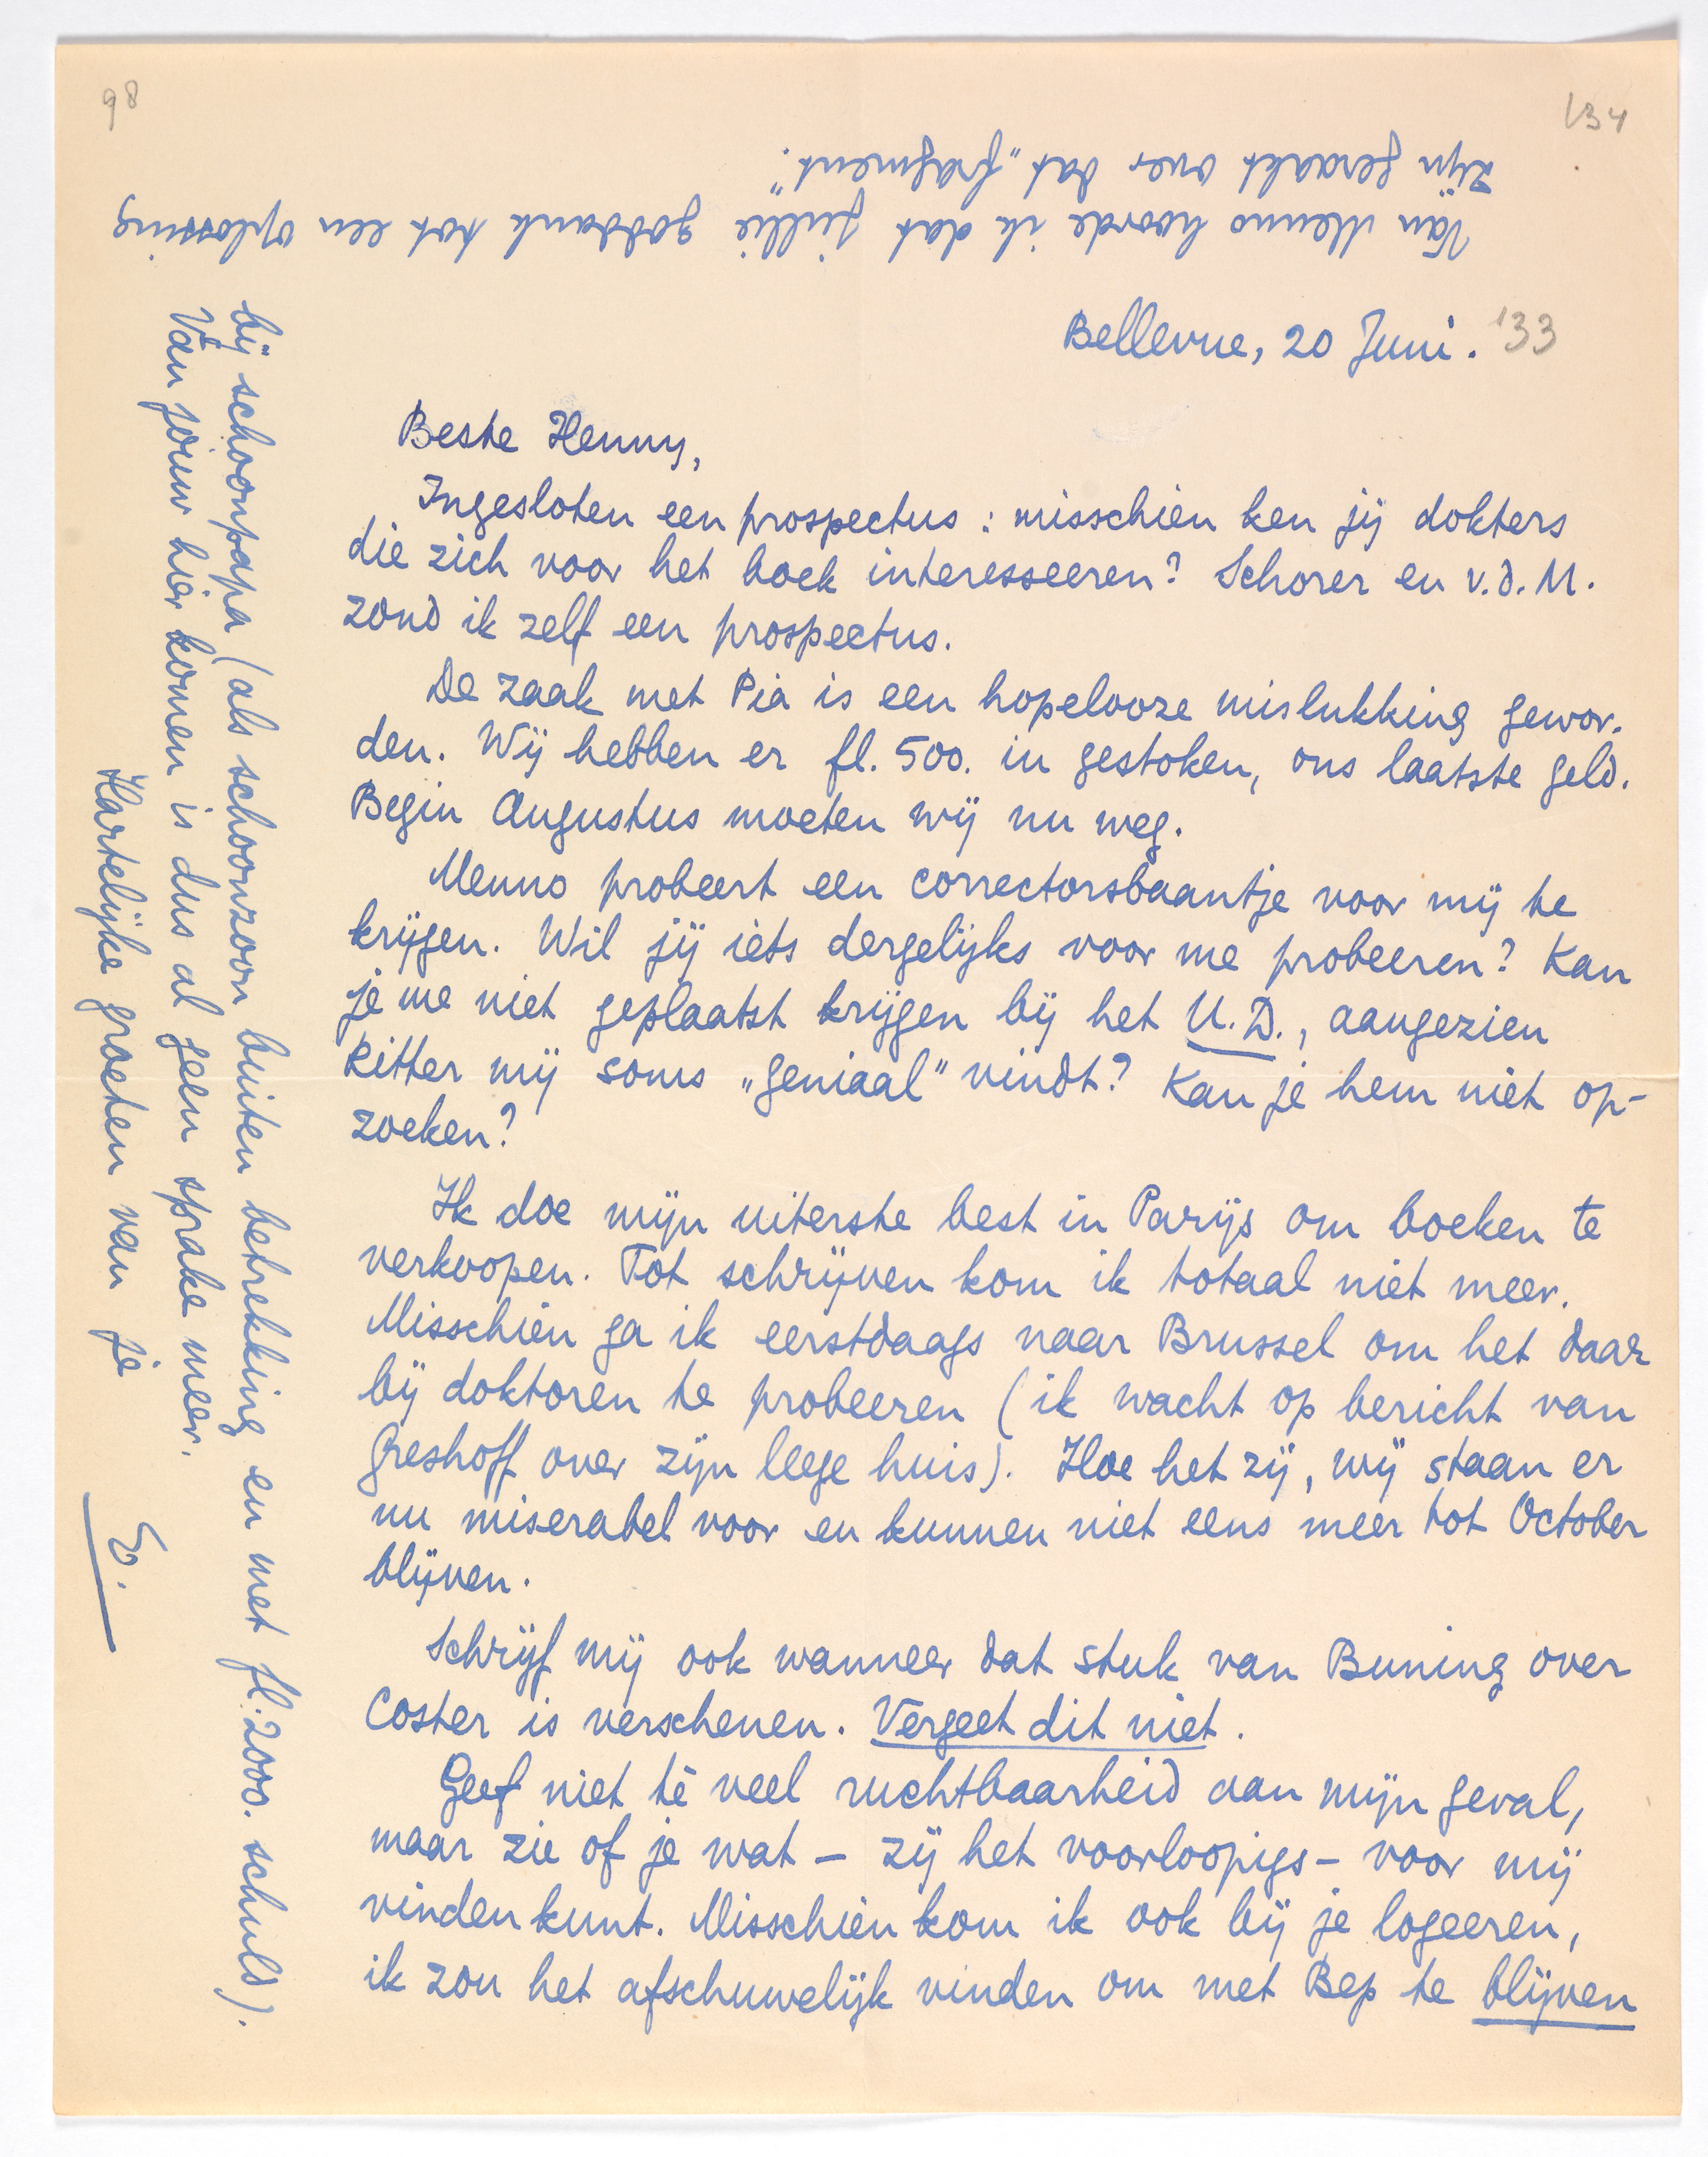 98
134
Bellevue, 20 Juni. '33
Beste Henny,
Ingesloten een prospectus: misschien ken jij dokters
die zich voor het boek interesseeren? Schorer en v.d. M.
zond ik zelf een prospectus.
De zaak met Pia is een hopelooze mislukking gewor-
den. Wij hebben er fl. 500. in gestoken, ons laatste geld.
Begin Augustus moeten wij nu weg.
Menno probeert een correctorsbaantje voor mij te
krijgen. Wil jij iets dergelijks voor me probeeren? Kan
je me niet geplaatst krijgen bij het U.D., aangezien
Ritter mij soms „geniaal” vindt? Kan je hem niet op-
zoeken?
Ik doe mijn uiterste best in Parijs om boeken te
verkoopen. Tot schrijven kom ik totaal niet meer.
Misschien ga ik eerstdaags naar Brussel om het daar
bij doktoren te probeeren (ik wacht op bericht van
Greshoff over zijn leege huis). Hoe het zij, wij staan er
nu miserabel voor en kunnen niet eens meer tot October
blijven.
Schrijf mij ook wanneer dat stuk van Buning over
Coster is verschenen. Vergeet dit niet.
Geef niet té veel ruchtbaarheid aan mijn geval,
maar zie of je wat – zij het voorloopigs – voor mij
vinden kunt. Misschien kom ik ook bij je logeeren,
ik zou het afschuwelijk vinden om met Bep te blijven
bij schoonpapa (als schoonzoon buiten betrekking en met fl. 2000. schuld).
Van jouw hier komen is dus al geen sprake meer.
Hartelijke groeten van je
E.
Van Menno hoorde ik dat jullie goddank tot een oplossing
zijn geraakt over dat „fragment”.